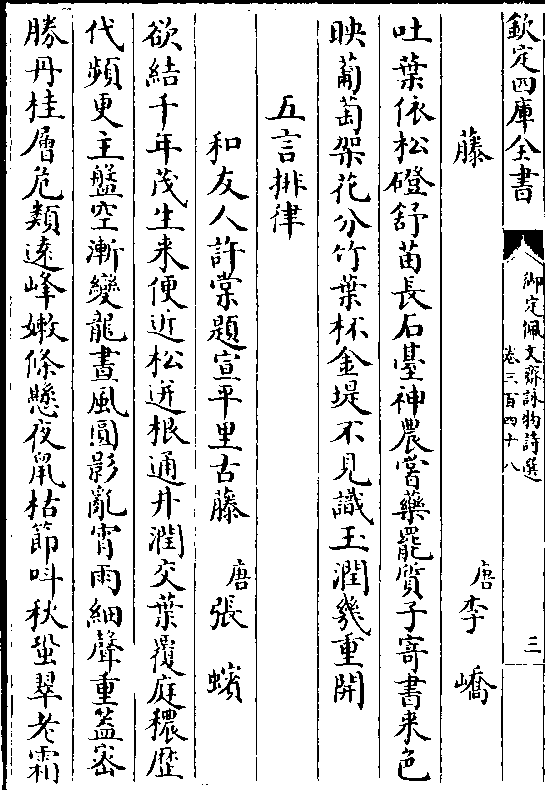 欽定四庫全書
御定佩文齋詠物詩選
卷三百四十八
三
藤
唐李嶠
吐葉依松磴舒苗長石臺神農嘗藥罷質子寄書来色
映葡萄架花分竹葉杯金堤不見識玉潤幾重開
五言排律
和友人許棠題宣平里古藤
唐張蠙
欲結千年茂生来便近松迸根通井潤交葉覆庭穠歴
代頻更主盤空漸變龍晝風圓影亂宵雨細聲重蓋宻
勝丹桂層危類逺峰嫩條懸夜鼠枯節叫秋蛩翠老霜